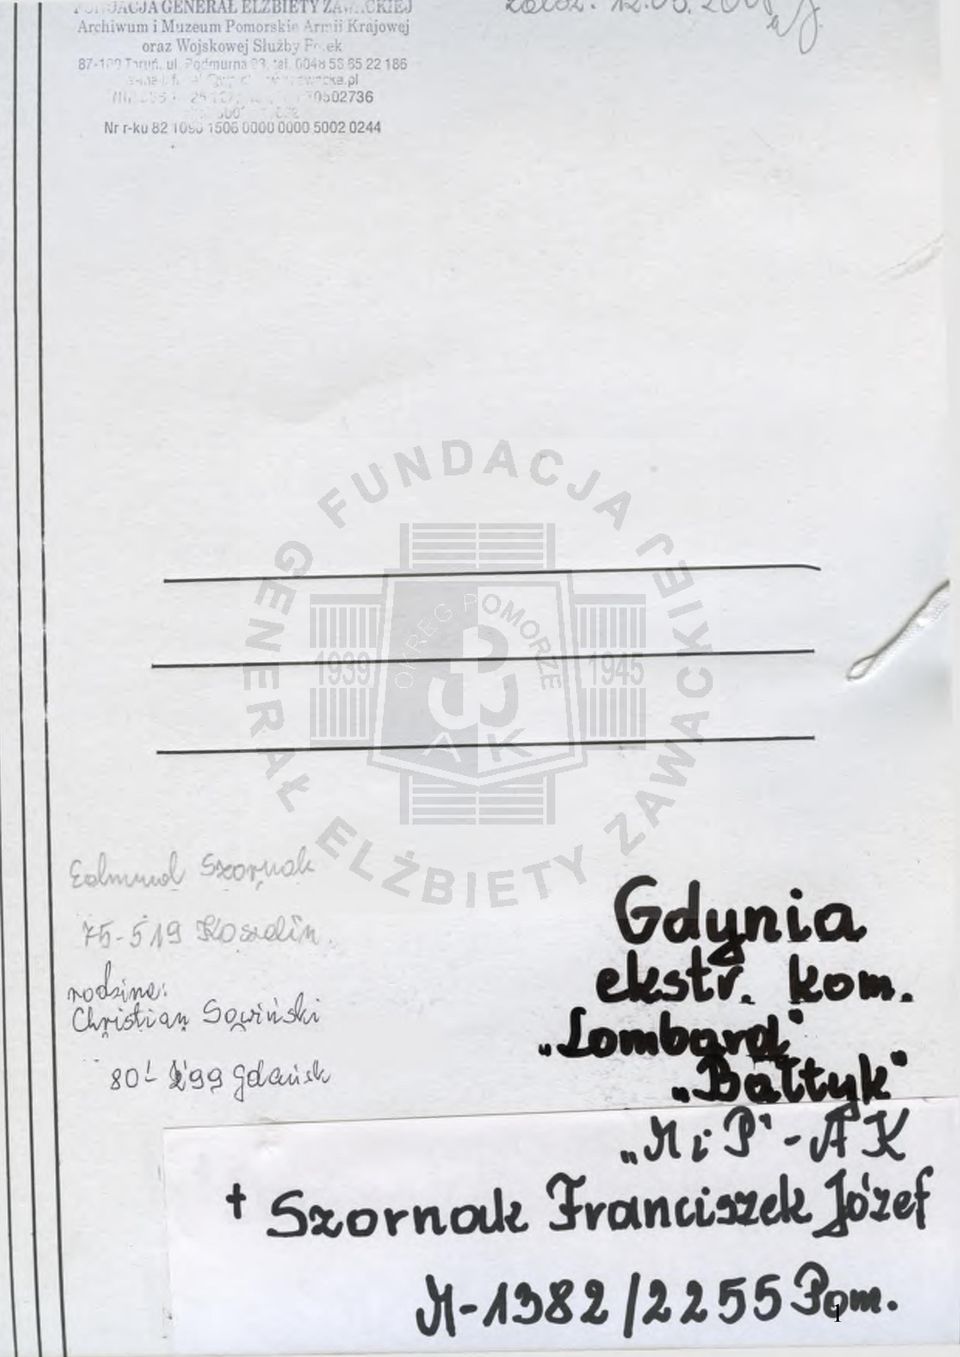 FUNDACJA GENERAŁ ELŻBIETY ZAWACKIEJ
Archiwum i Muzeum Pomorskie Armii Krajowej
oraz Wojskowej Służby Polek
87-100 Toruń, ul. Podmurna 93, tel. 0048 56 65 22 186
Nr r-ku 82 1090 1506 0000 0000 5002 0244
FUNDACJA JEIKCAWAZ
GENERAŁ ELŻBIETY ZAWACKIEJ
OKRĘG POMORZE
1939
1945
AK
Edmund Szornak
75-519 Koszalin
rodzina:
Christian Sowiński
80-299 Gdańsk
Gdynia
ekstr. kom.
„Lombard"
„Bałtyk"
„M i P" - AK
† Szornak Franciszek Józef
M-1382/2255 Pom.
1